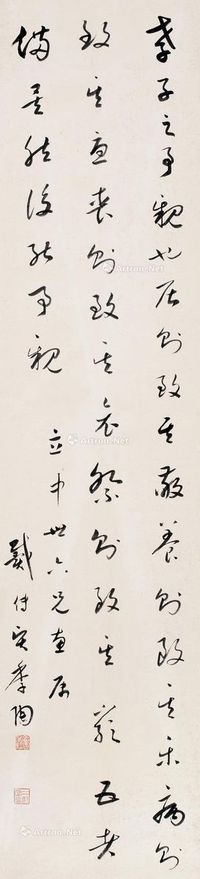 孝子之事親也居則致其敬養則致其樂病則
致其憂喪則致其哀祭則致其嚴五者
備矣然後能事親
立中世六兄直属
戴傳賢季陶